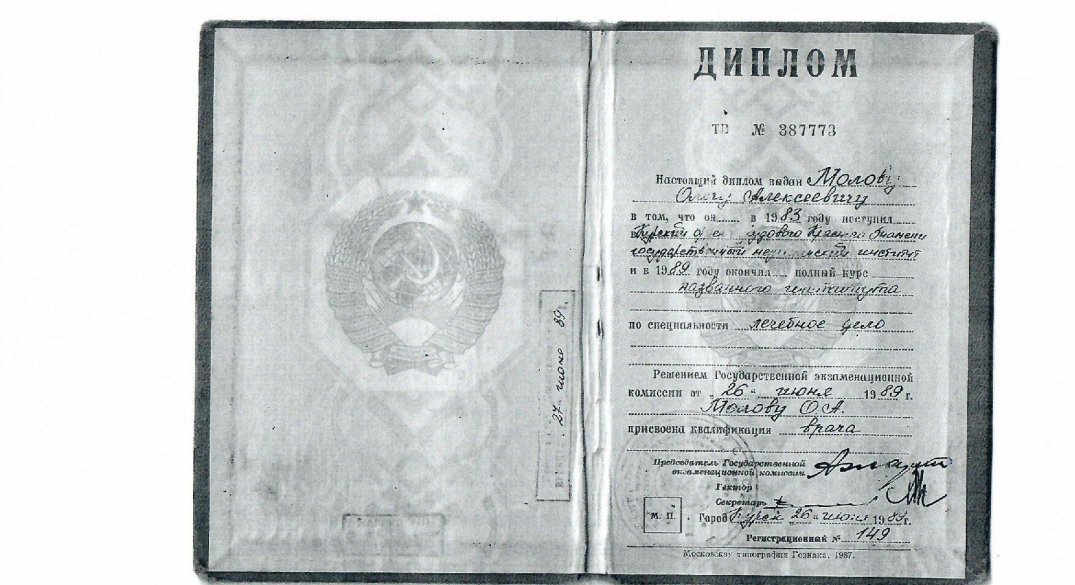 27 июня 89г.
ДИПЛОМ
№ 387773
Настоящий диплом выдан Молову
Олегу Алексеевичу
в том, что он в 1983 году поступил
в Курский трудового Красного Знамени
государственный медицинский институт
и в 1989 году окончил полный курс
названного института
по специальности лечебное дело
Решением Государственной экзаменационной
комиссии от „26“ июня 1989 г.
Молову О.А.
присвоена квалификация врача
Председатель Государственной
экзаменационной комиссии
Ректор
Секретарь
М. П. Город Курск 26 “ июня 1989г.
Регистрационный № 149
Московская типография Гознака. 1987.